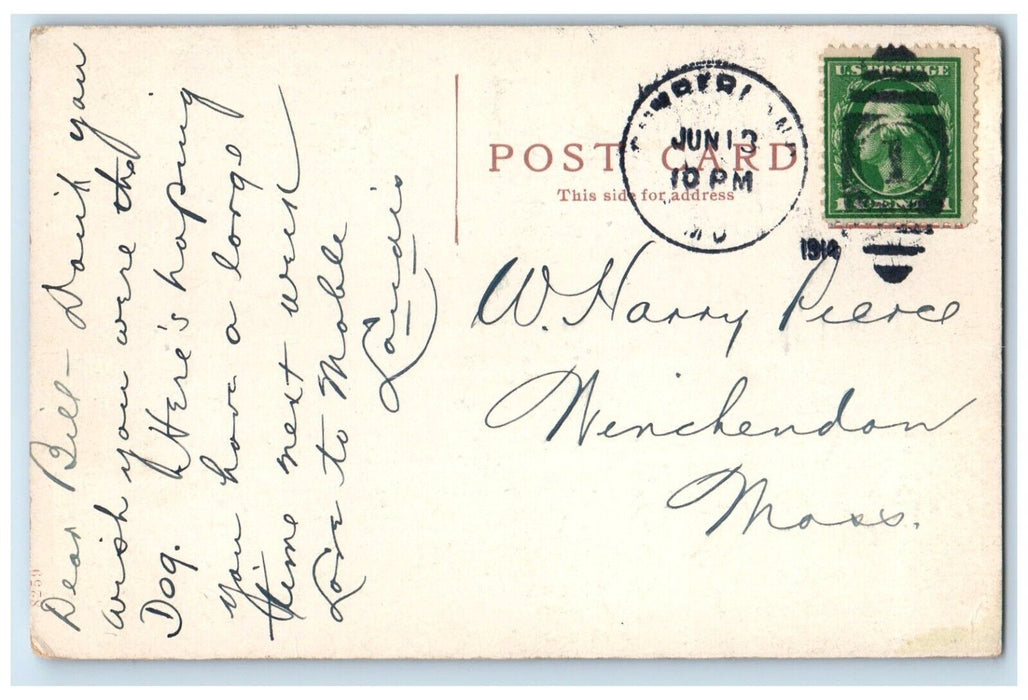 Dear Bill - Don't you
wish you were the
Dog. Here's hoping
you have a large
time next week
Love to Mable
Landis
POST CARD
This side for address
JUN 13
10 PM
MD
1914
U.S. POSTAGE
1 CENTS 1
W. Harry Pierce
Winchendon
Mass.
8259